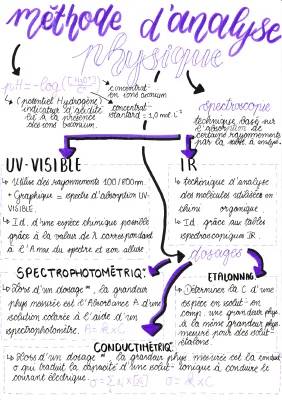 méthode d'analyse
physique
pH=-log([H₃O⁺]
concentrat°
en ions oxonium
concentrat°
standard = 1,0 mol.L⁻¹
(potentiel Hydrogène)
indicateur d'acidité
lié à la présence
des ions oxonium.
spectroscopie
technique basé sur
l'absorption de
certains rayonnements
par la molé. à analyse.
UV-VISIBLE
↳ Utilise des rayonnements 100/800nm.
↳ Graphique = spectre d'absorption UV-
VISIBLE.
↳ Id. d'une espèce chimique possible
grâce à la valeur de λ correspondant
à l'A max du spectre et son allure.
IR
↳ technique d'analyse
des molécules utilisées en
chimi organique
↳ Id. grâce aux tables
spectroscopiques IR.
dosages
SPECTROPHOTOMÉTRIQ:
↳ Hors d'un dosage, la grandeur
phys mesurée est l'Absorbance A d'une
solution colorée à l'aide d'un
spectrophotomètre. A = k x C
ETALONNING
↳ Déterminer la C d'une
espèce en solut° en
comp. une grandeur phys.
à la même grandeur phys.
mesuré pour des solut°
étalons.
CONDUCTIMÉTRIQ:
↳ Hors d'un dosage la grandeur phys mesurée est la conduct
σ qui traduit la capacité d'une solut° ionique à conduire le
courant électrique. σ = Σ λi x [Xi] σ = k x C